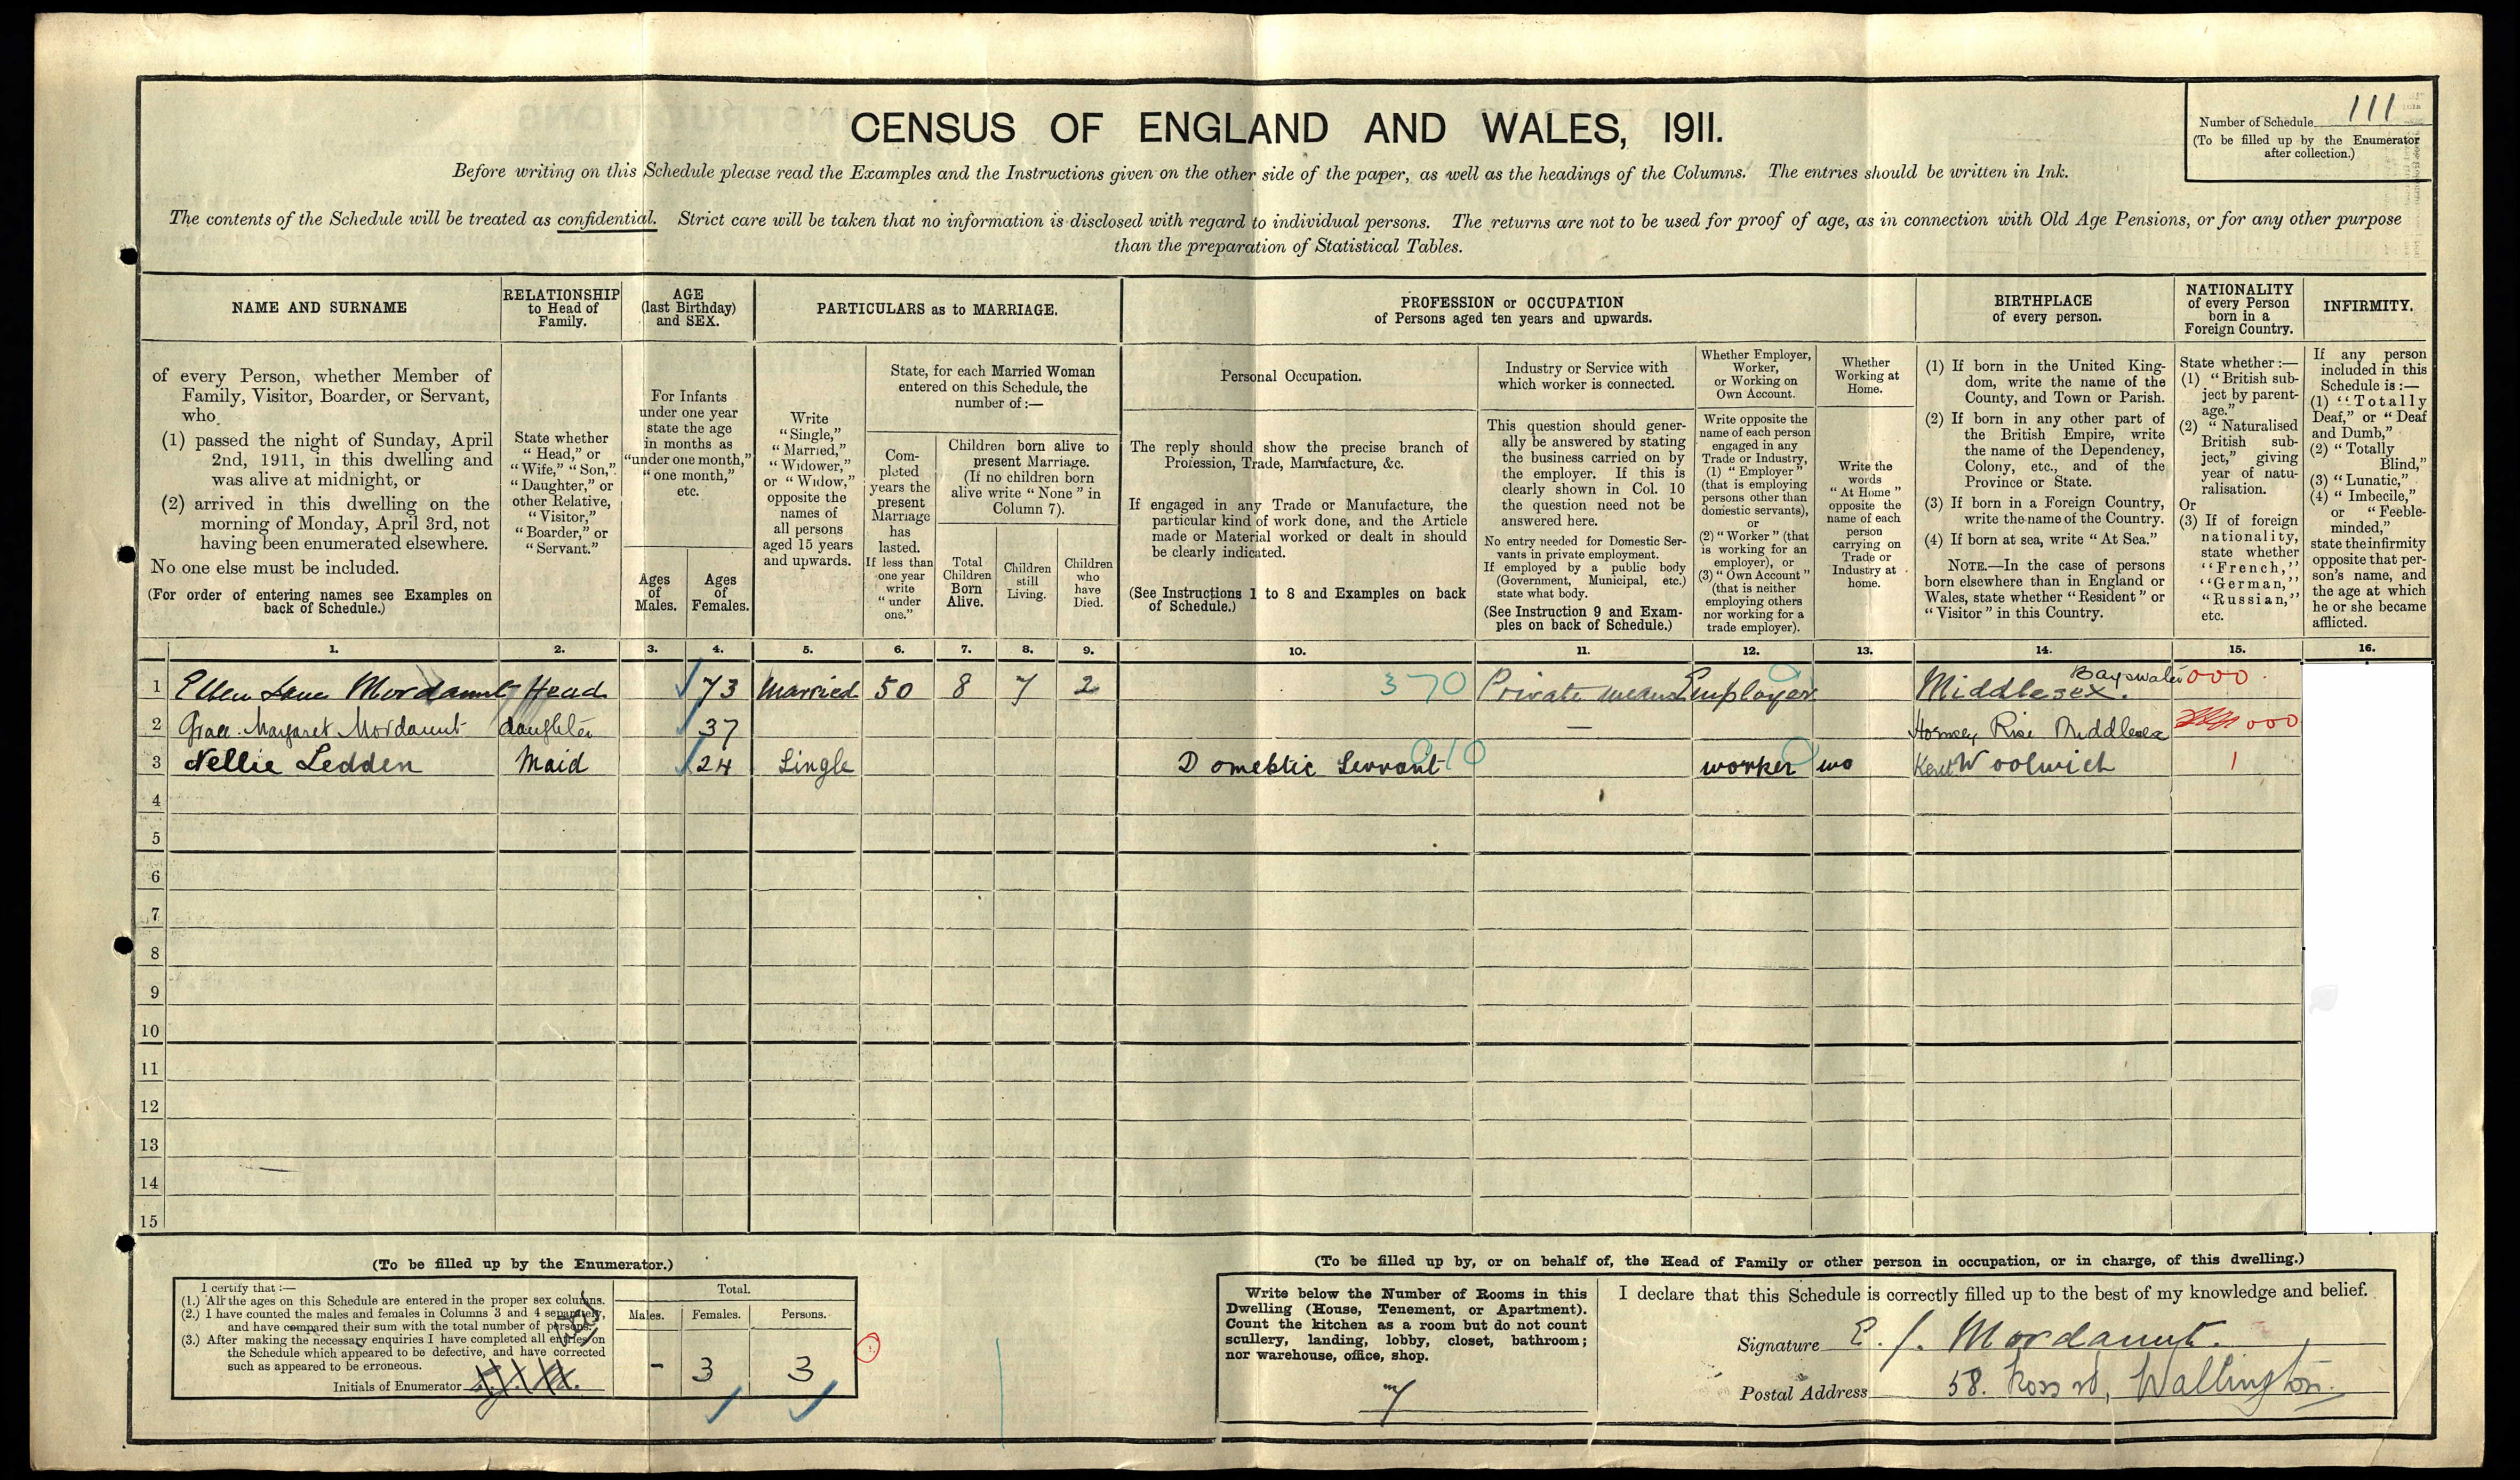 CENSUS OF ENGLAND AND WALES, 1911.
Number of Schedule 111
(To be filled up by the Enumerator
after collection.)
Before writing on this Schedule please read the Examples and the Instructions given on the other side of the paper, as well as the headings of the Columns. The entries should be written in Ink.
The contents of the Schedule will be treated as confidential. Strict care will be taken that no information is disclosed with regard to individual persons. The returns are not to be used for proof of age, as in connection with Old Age Pensions, or for any other purpose
than the preparation of Statistical Tables.
NAME AND SURNAME
of every Person, whether Member of
Family, Visitor, Boarder, or Servant,
who
(1) passed the night of Sunday, April
2nd, 1911, in this dwelling and
was alive at midnight, or
(2) arrived in this dwelling on the
morning of Monday, April 3rd, not
having been enumerated elsewhere.
No one else must be included.
(For order of entering names see Examples on
back of Schedule.)
RELATIONSHIP
to Head of
Family.
State whether
"Head," or
"Wife," "Son,"
"Daughter," or
other Relative,
"Visitor,"
"Boarder," or
"Servant."
AGE
(last Birthday)
and SEX.
For Infants
under one year
state the age
in months as
"under one month,"
"one month,"
etc.
Ages
of
Males.
Ages
of
Females.
PARTICULARS as to MARRIAGE.
Write
"Single,"
"Married,"
"Widower,"
or "Widow,"
opposite the
names of
all persons
aged 15 years
and upwards.
State, for each Married Woman
entered on this Schedule, the
number of:—
Com-
pleted
years the
present
Marriage
has
lasted.
If less than
one year
write
"under
one."
Children born alive to
present Marriage.
(If no children born
alive write "None" in
Column 7).
Total
Children
Born
Alive.
Children
still
Living.
Children
who
have
Died.
PROFESSION or OCCUPATION
of Persons aged ten years and upwards.
Personal Occupation.
The reply should show the precise branch of
Profession, Trade, Manufacture, &c.
If engaged in any Trade or Manufacture, the
particular kind of work done, and the Article
made or Material worked or dealt in should
be clearly indicated.
(See Instructions 1 to 8 and Examples on back
of Schedule.)
Industry or Service with
which worker is connected.
This question should gener-
ally be answered by stating
the business carried on by
the employer. If this is
clearly shown in Col. 10
the question need not be
answered here.
No entry needed for Domestic Ser-
vants in private employment.
If employed by a public body
(Government, Municipal, etc.)
state what body.
(See Instruction 9 and Exam-
ples on back of Schedule.)
Whether Employer,
Worker,
or Working on
Own Account.
Write opposite the
name of each person
engaged in any
Trade or Industry,
(1) "Employer"
(that is employing
persons other than
domestic servants),
or
(2) "Worker" (that
is working for an
employer), or
(3) "Own Account"
(that is neither
employing others
nor working for a
trade employer).
Whether
Working at
Home.
Write the
words
"At Home"
opposite the
name of each
person
carrying on
Trade or
Industry at
home.
BIRTHPLACE
of every person.
(1) If born in the United King-
dom, write the name of the
County, and Town or Parish.
(2) If born in any other part of
the British Empire, write
the name of the Dependency,
Colony, etc., and of the
Province or State.
(3) If born in a Foreign Country,
write the name of the Country.
(4) If born at sea, write "At Sea."
NOTE.—In the case of persons
born elsewhere than in England or
Wales, state whether "Resident" or
"Visitor" in this Country.
NATIONALITY
of every Person
born in a
Foreign Country.
State whether:—
(1) "British sub-
ject by parent-
age."
(2) "Naturalised
British sub-
ject," giving
year of natu-
ralisation.
Or
(3) If of foreign
nationality,
state whether
"French,"
"German,"
"Russian,"
etc.
INFIRMITY.
If any person
included in this
Schedule is:—
(1) "Totally
Deaf," or "Deaf
and Dumb,"
(2) "Totally
Blind,"
(3) "Lunatic,"
(4) "Imbecile,"
or "Feeble-
minded,"
state the infirmity
opposite that per-
son's name, and
the age at which
he or she became
afflicted.
1. 2. 3. 4. 5. 6. 7. 8. 9. 10. 11. 12. 13. 14. 15. 16.
1 Ellen Jane Mordaunt Head 73 Married 50 8 7 2 370 Private means Employer Middlesex. Bayswater 000
2 Grace Margaret Mordaunt daughter 37 — Hornsey Rise Middlesex 000
3 Nellie Ledden Maid 24 Single Domestic Servant 010 worker wo Kent Woolwich 1
4
5
6
7
8
9
10
11
12
13
14
15
(To be filled up by the Enumerator.)
I certify that:—
(1.) All the ages on this Schedule are entered in the proper sex columns.
(2.) I have counted the males and females in Columns 3 and 4 separately,
and have compared their sum with the total number of persons.
(3.) After making the necessary enquiries I have completed all entries on
the Schedule which appeared to be defective, and have corrected
such as appeared to be erroneous.
Initials of Enumerator
Total.
Males. Females. Persons.
- 3 3
(To be filled up by, or on behalf of, the Head of Family or other person in occupation, or in charge, of this dwelling.)
Write below the Number of Rooms in this
Dwelling (House, Tenement, or Apartment).
Count the kitchen as a room but do not count
scullery, landing, lobby, closet, bathroom;
nor warehouse, office, shop.
7
I declare that this Schedule is correctly filled up to the best of my knowledge and belief.
Signature E. J. Mordaunt.
Postal Address 58. Ross rd, Wallington.